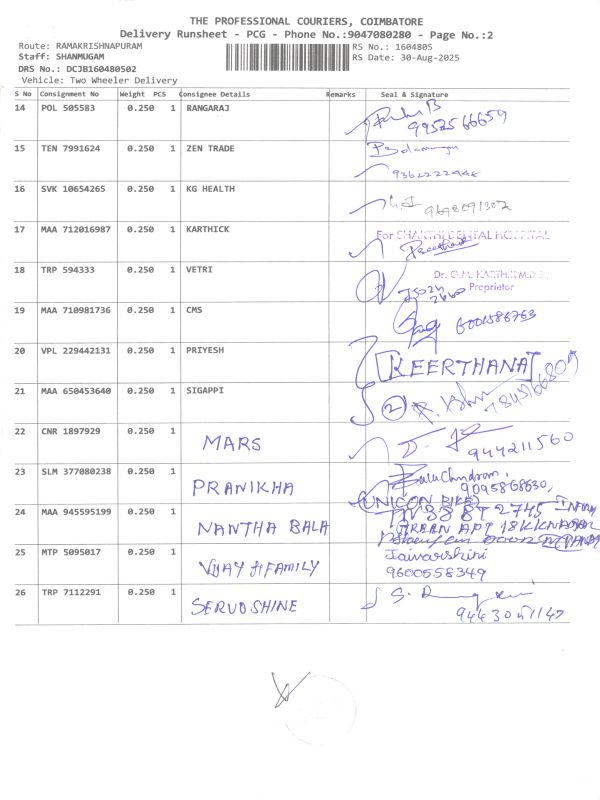 THE PROFESSIONAL COURIERS, COIMBATORE
Delivery Runsheet - PCG - Phone No.:9047080280 - Page No.:2
Route: RAMAKRISHNAPURAM RS No.: 1604805
Staff: SHANMUGAM RS Date: 30-Aug-2025
DRS No.: DCJB160480502
Vehicle: Two Wheeler Delivery
S No Consignment No Weight PCS Consignee Details Remarks Seal & Signature
14 POL 505583 0.250 1 RANGARAJ
9952566659
15 TEN 7991624 0.250 1 ZEN TRADE
9362222448
16 SVK 10654265 0.250 1 KG HEALTH
9698091302
17 MAA 712016987 0.250 1 KARTHICK For SHAKTHI DENTAL HOSPITAL
18 TRP 594333 0.250 1 VETRI Dr. G.M. KARTHIK M.D.S.,
Proprietor
19 MAA 710981736 0.250 1 CMS
6001586763
20 VPL 229442131 0.250 1 PRIYESH KEERTHANA
21 MAA 650453640 0.250 1 SIGAPPI 2
22 CNR 1897929 0.250 1 MARS
9444211560
23 SLM 377080238 0.250 1 PRANIKHA Balu Chndram,
9095868630,
(UNICON BIKE)
24 MAA 945595199 0.250 1 NANTHA BALA TN 38 BT 2745
25 MTP 5095017 0.250 1 VIJAY H FAMILY Jaivarshini
9600558349
26 TRP 7112291 0.250 1 SERVOSHINE S.
9443051147